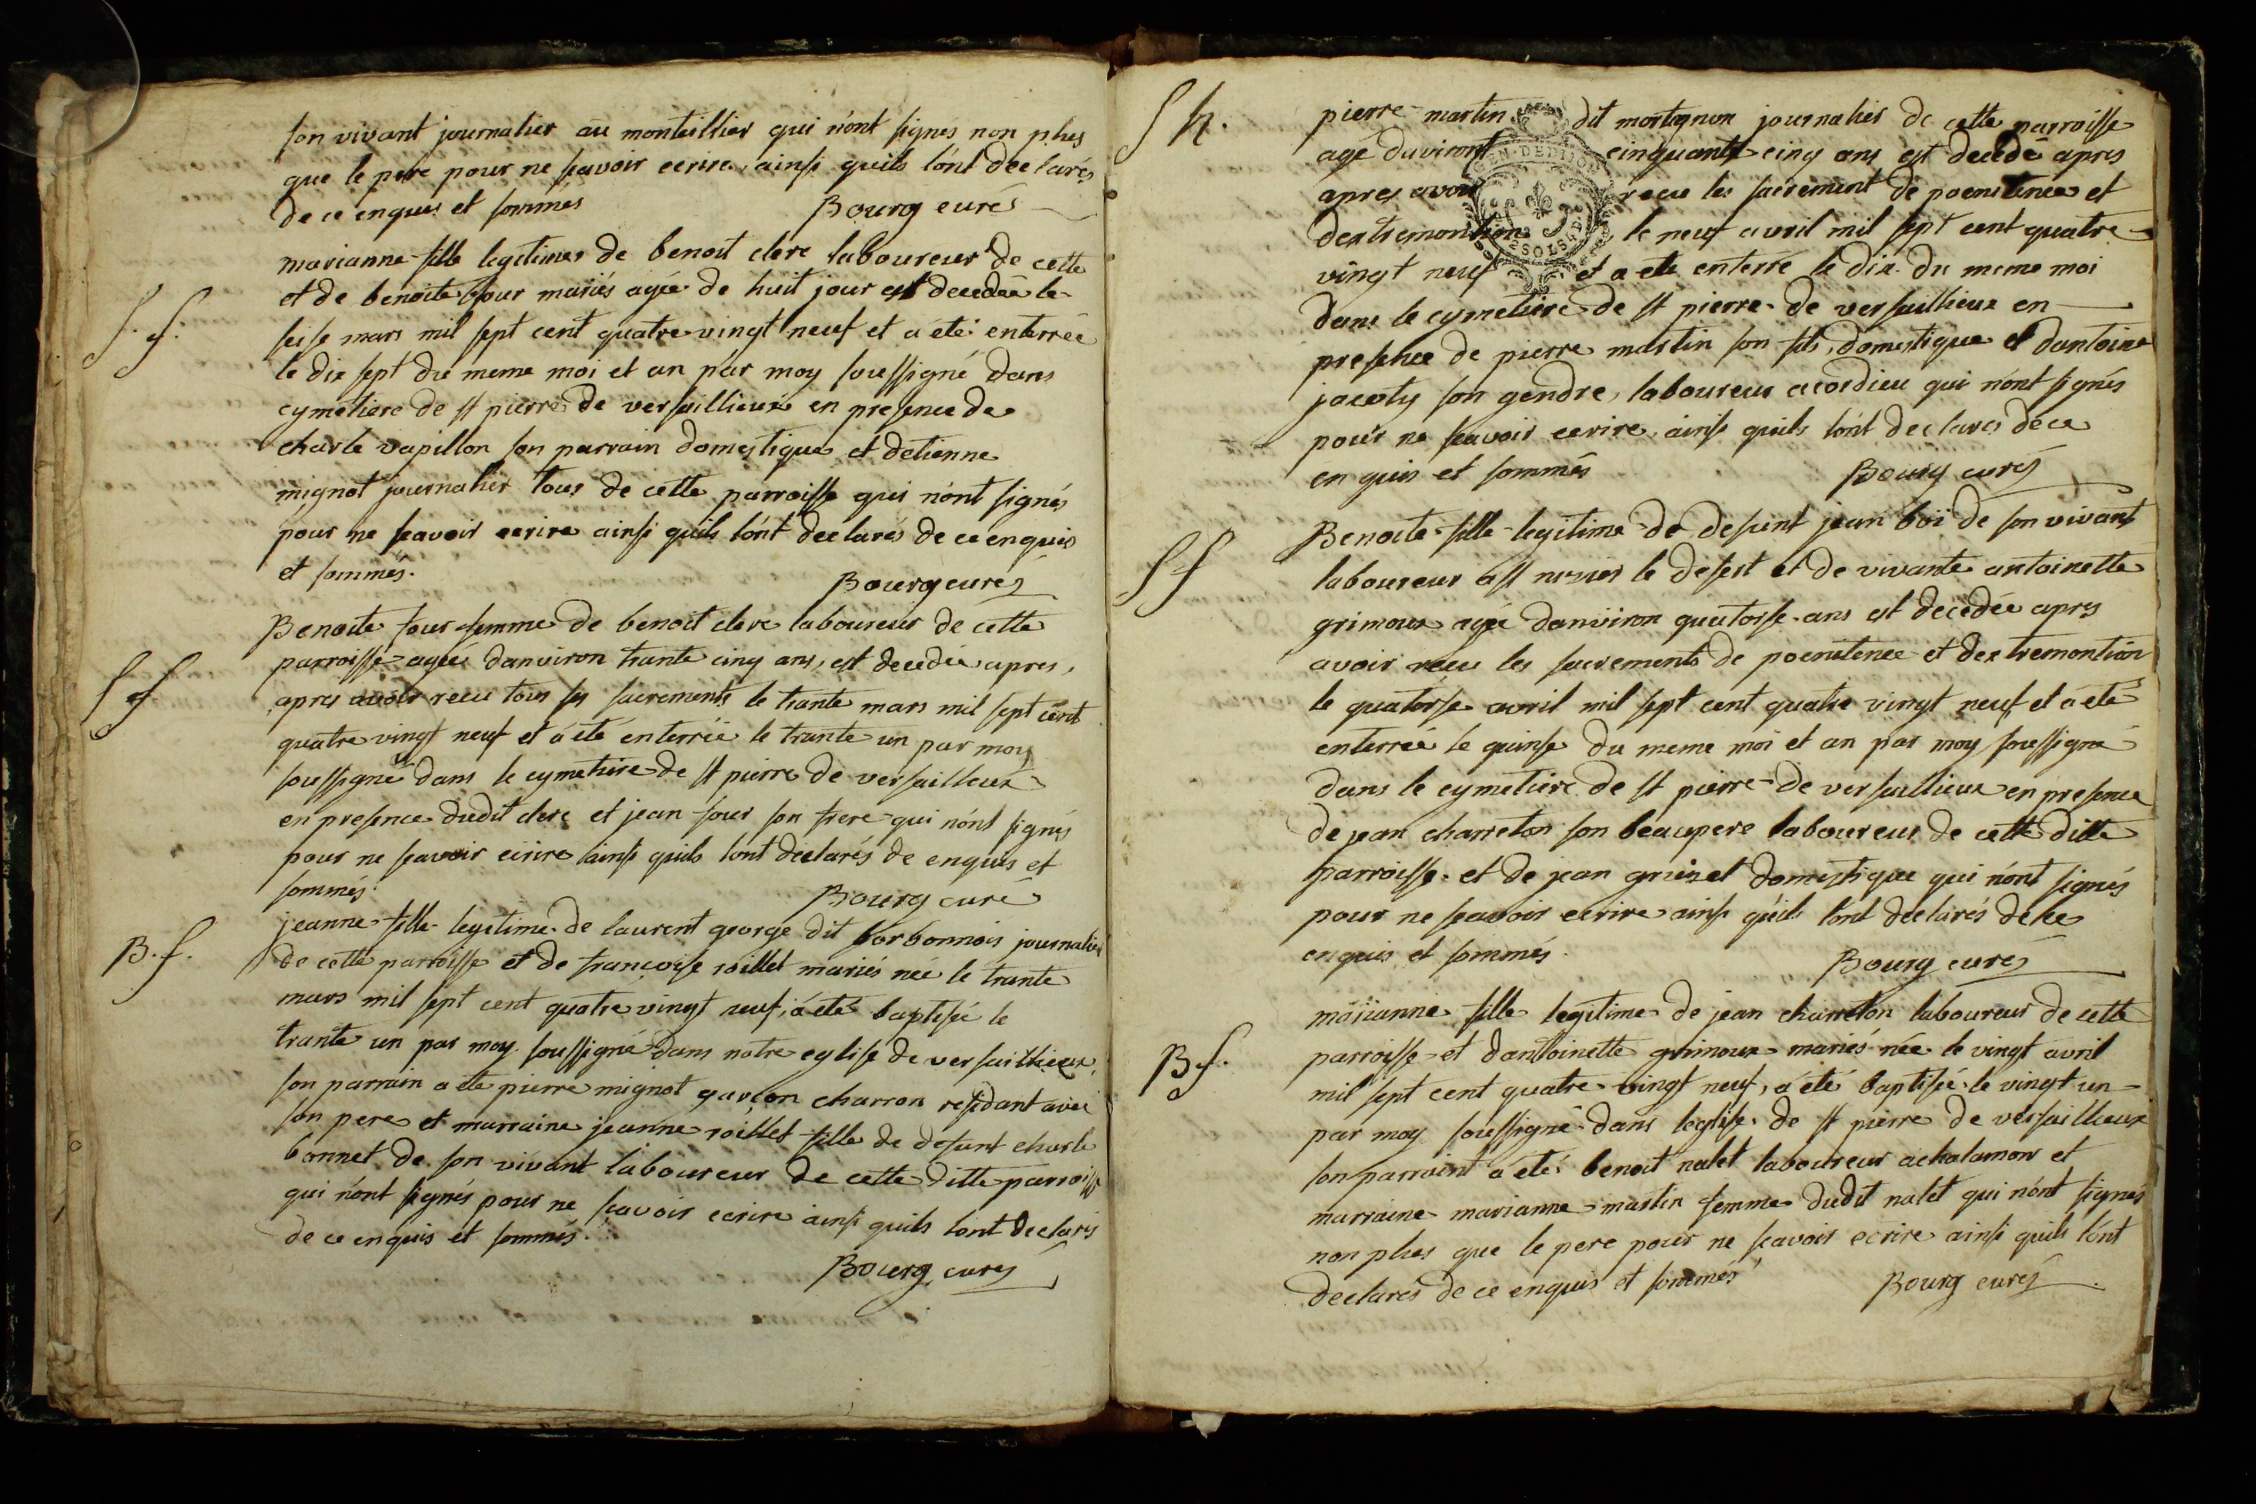 son vivant journalier au monteillier qui n'ont signés non plus
que le pere pour ne scavoir ecrire, ainsi quils lónt declarés
de ce enquis et sommés Bourg curés
marianne fille legitime de benoit clere laboureur de cette
et de benoite four mariés agée de huit jour est decedée le
S. f.
seise mars mil sept cent quatre vingt neuf et a été enterrée
le dix sept du meme moi et an par moy soussigné dans
cymetiere de st pierre de versaillieux en presence de
charle vapillon son parrain domestique et detienne
mignot journalier tous de cette parroisse qui n'ont signés
pour ne scavoir ecrire ainsi quils lónt declarés de ce enquis
et sommés. Bourg curés
Benoite four femme de benoit clere laboureur de cette
S f
parroisse agée danviron trante cinq ans, est decedée apres,
apres avoir recu tous ses sacrements le trante mars mil sept cent
quatre vingt neuf et a été enterrée le trante un par moy
soussigné dans le cymetiere de st pierre de versailleux
en presence dudit clere et jean four son frere qui n'ont signés
pour ne scavoir ecrire ainsi quils lont declarés de enquis et
sommés. Bourg curé
jeanne fille legitime de laurent george dit borbonnois journalier
B. f.
de cette parroisse et de francoise roillet mariés née le trante
mars mil sept cent quatre vingt neuf, a été baptisée le
trante un par moy soussigné dans notre eglise de versaillieux,
son parrain a ete pierre mignot garcon charron residant avec
son pere et marraine jeanne roillet fille de defunt charle
bonnet de son vivant laboureur de cette ditte parroisse
qui n'ont signés pour ne scavoir ecrire ainsi quils lont declarés
de ce enquis et sommés. Bourg curés
S h.
pierre martin dit mortagnon journalier de cette parroisse
agé danviront cinquante cinq ans est decedé apres
apres avoir recu les sacrement de poenitence et
dextremontion, le neuf avril mil sept cent quatre
vingt neuf et a ete enterré le dix du meme moi
GEN. DE DIJON
2 SOLS 4 D
dans le cymetiere de st pierre de versaillieux en
presence de pierre martin son fils, domestique et dantoine
jacoty son gendre, laboureur a cordieu qui n'ont signés
pour ne scavoir ecrire, ainsi quils lónt declarés de ce
en quis et sommés Bourg curés
S f
Benoite fille legitime de defunt jean boi de son vivant
laboureur a st nisier le desert et de vivante antoinette
grimoux agée danviron quatorse ans est decedée apres
avoir recu les sacrements de poenitence et dextremontion
le quatorse avril mil sept cent quatre vingt neuf et a été
enterrée le quinse du meme moi et an par moy soussigné
dans le cymetiere de st pierre de versaillieux en presence
de jean charreton son beaupere laboureur de cette ditte
parroisse et de jean grisset domestique qui n'ont signés
pour ne scavoir ecrire ainsi quils lónt declarés de ce
enquis et sommés. Bourg curés
mariianne fille legitime de jean charreton laboureur de cette
B f.
parroisse et dantoinette grimoux mariés née le vingt avril
mil sept cent quatre vingt neuf, a été baptisée le vingt un
par moy soussigné dans leglise de st pierre de versaillieux
son parraint a été benoit nalet laboureur a chalamon et
marraine marianne martin femme dudit nalet qui n'ont signés
non plus que le pere pour ne scavoir ecrire ainsi quils lónt
declarés de ce enquis et sommés Bourg curés